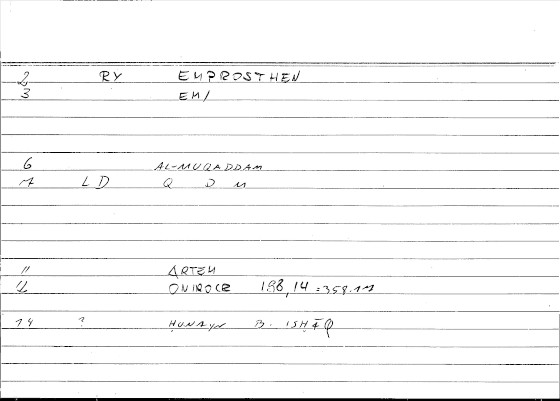 2 RY EMPROSTHEN
3 EM/
6 AL-MUQADDAM
7 LD Q D M
11 ARTEM
12 ONIROCR 198,14 = 358.17
14 ? ḤUNAYN B. ISḤĀQ